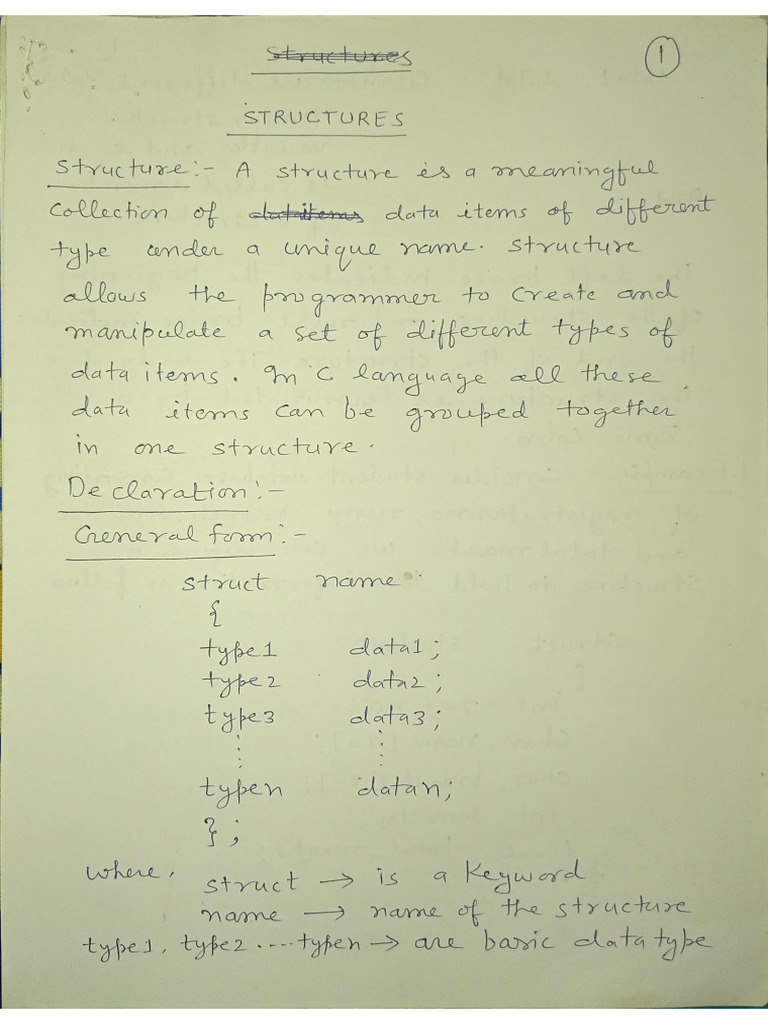 Structures
1
STRUCTURES
Structure:- A structure is a meaningful
collection of dataitems data items of different
type under a unique name. Structure
allows the programmer to create and
manipulate a set of different types of
data items. In C language all these
data items can be grouped together
in one structure.
Declaration:-
General form:-
struct name
{
type1 data1;
type2 data2;
type3 data3;
⋮ ⋮
typen datan;
};
where, struct → is a keyword
name → name of the structure
type1, type2 ....typen → are basic data type